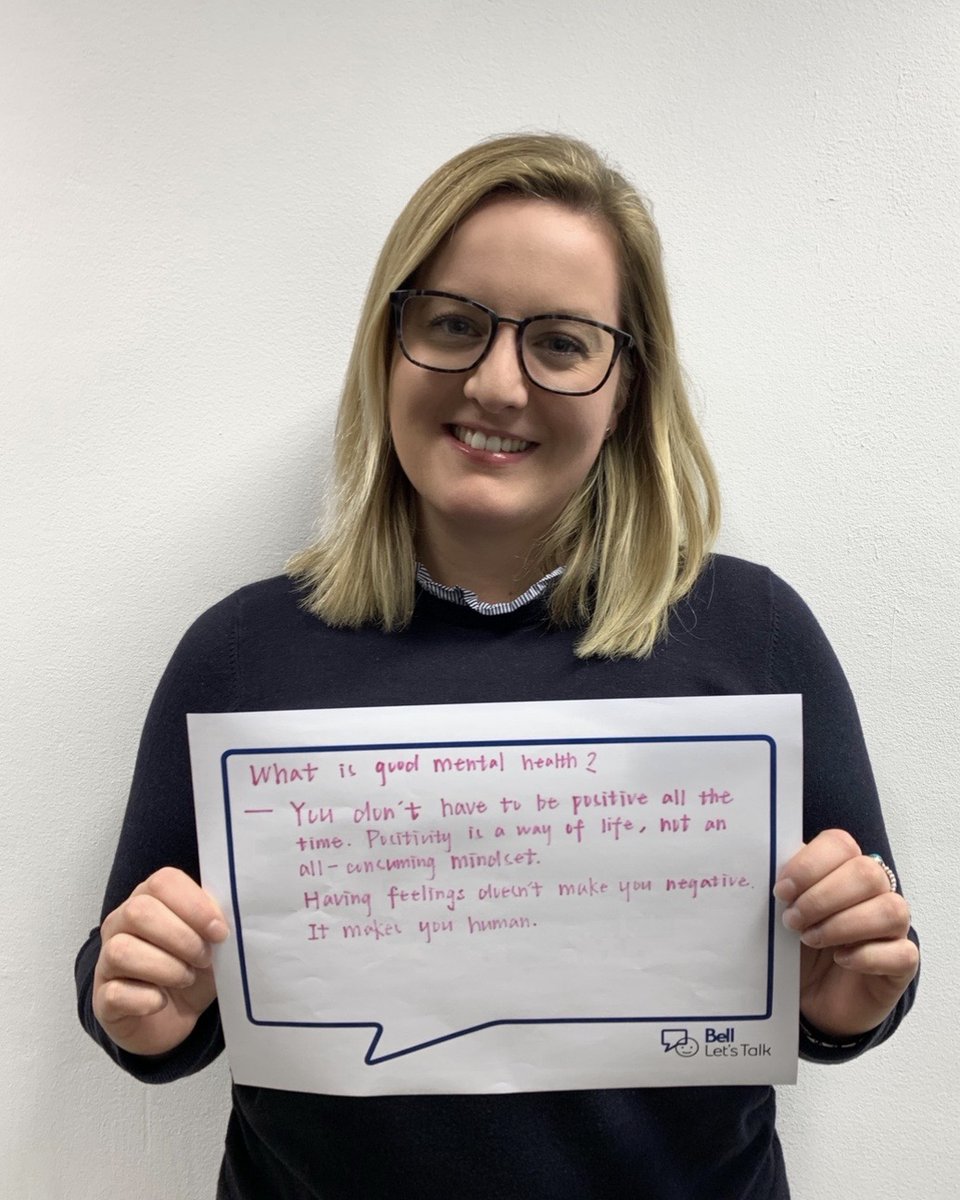 What is good mental health?
— You don't have to be positive all the
time. Positivity is a way of life, not an
all-consuming mindset.
Having feelings doesn't make you negative.
It makes you human.
Bell
Let's Talk